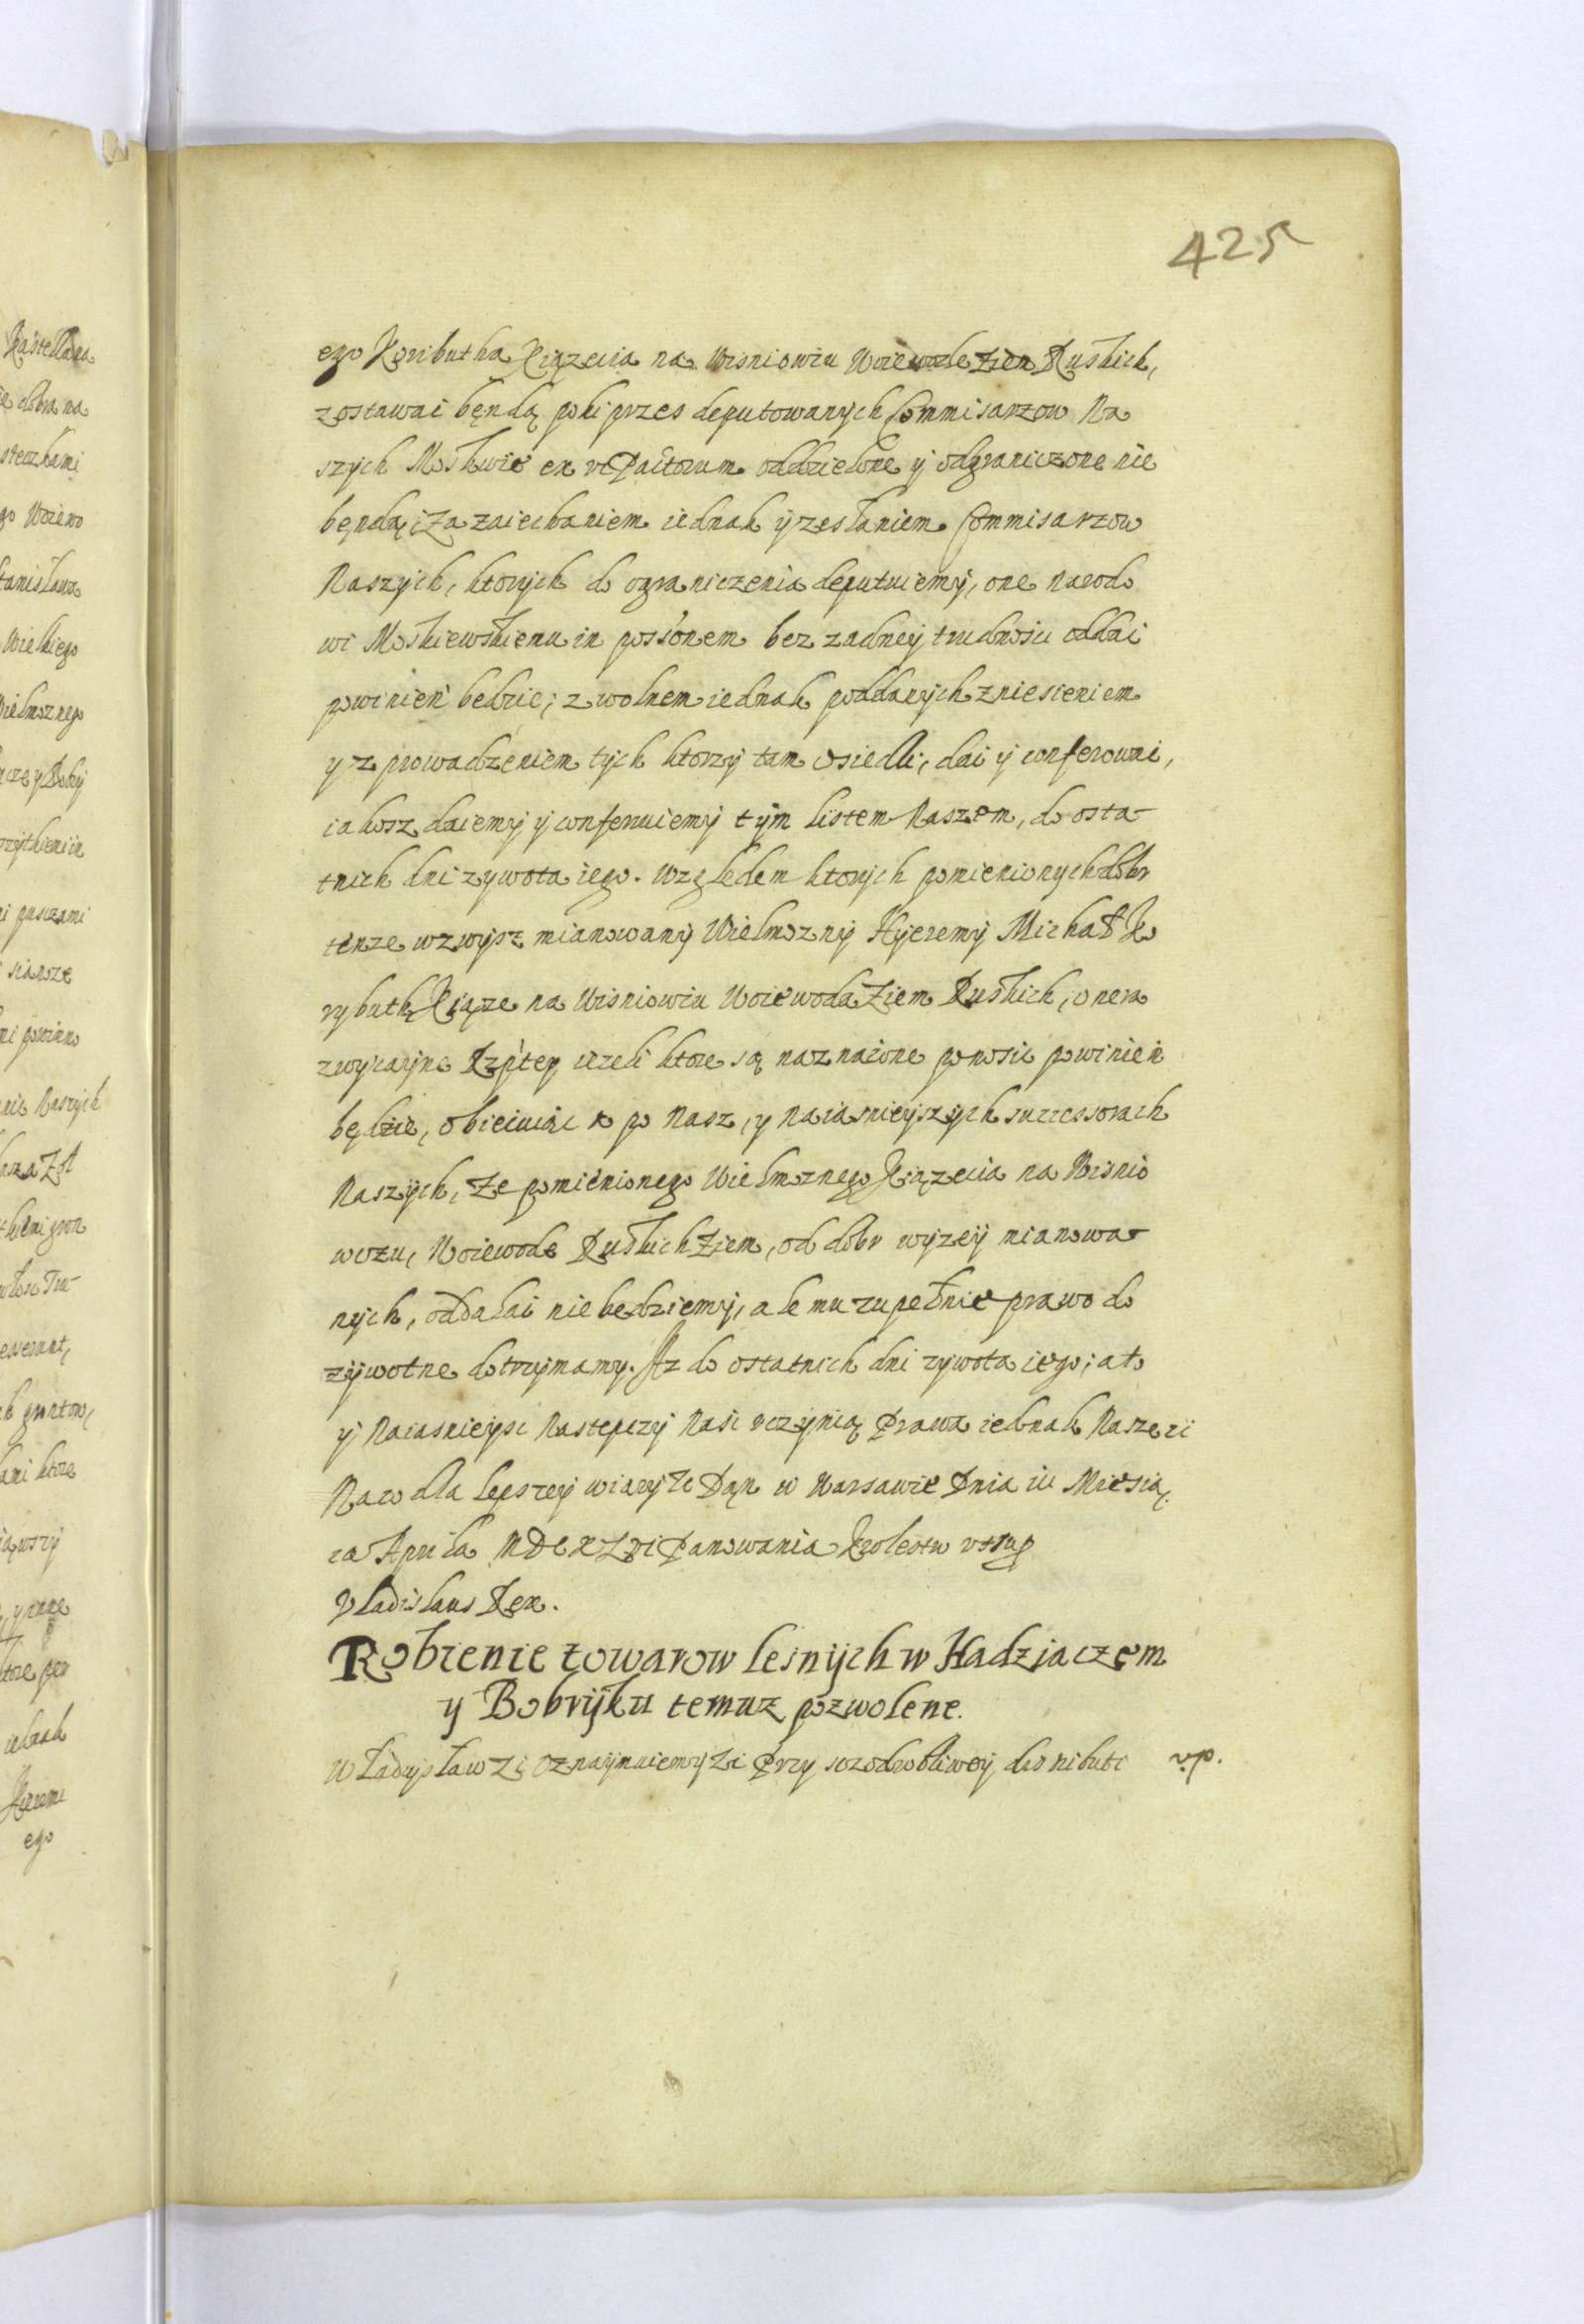 425
ego Koributha Xiązecia na Wisniowiu Woiewode Ziem Ruskich,
zostawai będą poki przes deputowanych Commisarzow Na
szych Moskwie ex vi Pactorum oddzielone y odgraniczone nie
będą; Za zaiechaniem iednak y zesłaniem Commisarzow
Naszych, ktorych do ograniczenia deputuiemy, one Narodo
wi Moskiewskiemu in possionem bez zadney trudnosci oddai
powinien bedzie; z wolnem iednak poddanych zniesieniem
y z prowadzeniem tych ktorzy tam osiedli, dai y conferowai,
iakosz daiemy y conferuiemy tym listem Naszem, do osta-
tnich dni zywota iego. Względem ktorych pomienionych dobr
tenze wzwysz mianowany Wielmozny Hyeremy Michał Ko
rybuth Xiąze na Wisniowiu Woiewoda Ziem Ruskich, onera
zwyczayne Rzptey iezeli ktore są naznaczone ponosic powinien
będzie, obieiuiąc po Nasz, y Naiasnieyszych successorach
Naszych, Ze pomienionego Wielmoznego Xiązecia na Wisnio
wczu, Woiewode Ruskich Ziem, od dobr wyzey mianowa-
nych, oddalai nie bedziemy, ale mu zupełnie prawo do
zywotne dotrzymamy. Az do ostatnich dni zywota iego; a to
y Naiasnieysi Nastepczy Nasi uczynią Prawa iednak Nasze ii
Na co dla lepszey wiary Ec Dan w Warsawie Dnia iii Miesią
ca Aprila MDCXLVI Panowania Krolestw ut sup
Vladislaus Rex.
Robienie towarow lesnych w Hadziaczem
y Bobryku temuz pozwolene.
Władysław Zc Oznaymuiemy Zi Przy sczodrobliwey distributi v.p.